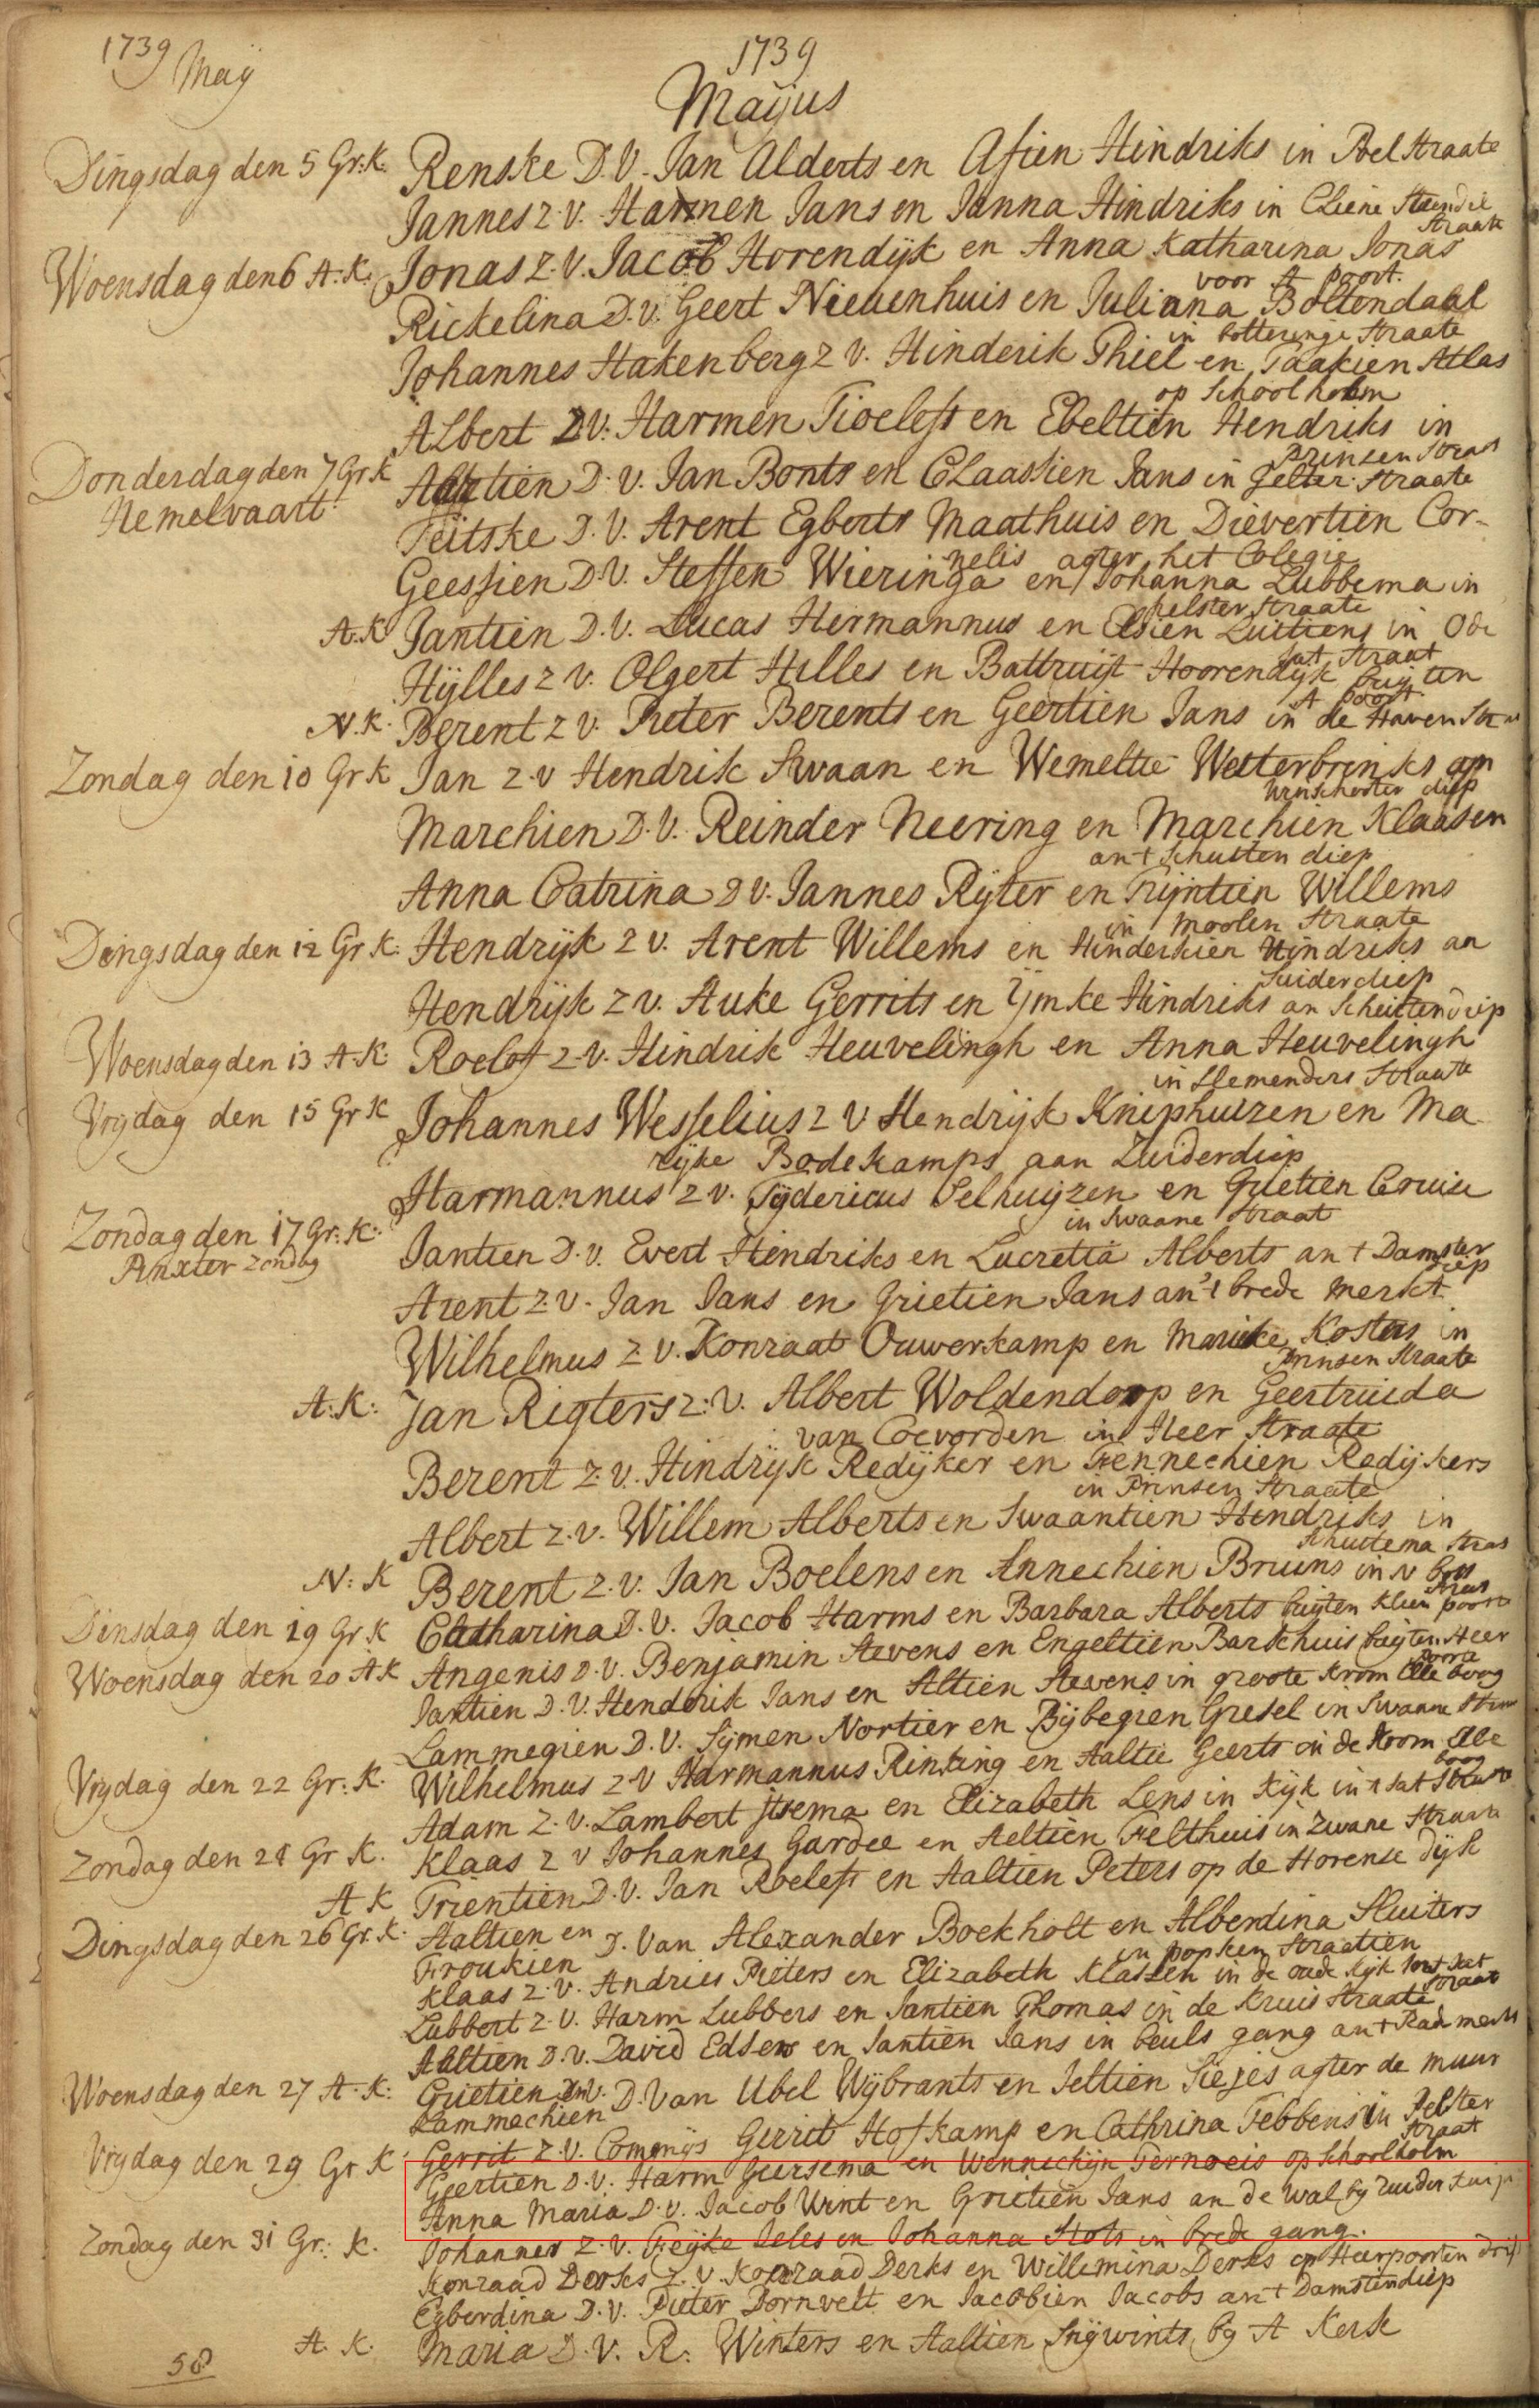 1739 Maij
1739
Maijus
Dingsdag den 5 Gr: K. Renske D. V. Jan Alderts en Afien Hindriks in Poelstraate
Jannes z. v. Harmen Jans en Janna Hindriks in Cliene
Straate
Woensdag den 6 A. K. Jonas z. v. Jacob Horendijk en Anna Katharina Jonas
voor A poort.
Rickelina D. v. Geert Nieuenhuis en Juliana Boltendaal
in botteringe Straate
Johannes Hakenberg z v. Hinderik Thiel en Taakien Atlas
op Schoolholm
Albert z. v. Harmen Tioelefs en Ebeltien Hendriks in
Prinzen Straat
Donderdag den 7 Gr K Aaltien D. v. Jan Bonts en Claassien Jans in Gelter Straate
Hemelvaart
Teitske D. V. Arent Egberts Maathuis en Dievertien Cor-
nelis agter het Colegie
Geessien D. V. Steffen Wieringa en Johanna Lubbema in
pelster Straate
A. K Jantien D. V. Lucas Hermannus en Elsien Luitiens in Ode
Jat Straat
Hijlles z v. Olgert Hilles en Battruijt Hoorendijk buijten
A poort.
N. K. Berent z v. Pieter Berents en Geertien Jans in de Haven Stra
Zondag den 10 Gr K Jan z. v Hendrik Swaan en Wemeltie Westerbrinks an
Winschoter diep
Marchien D. V. Reinder Neering en Marchien Klaasen
an t Schuiten diep
Anna Catrina D v. Jannes Rijter en Trijntien Willems
in Moolen Straate
Dingsdag den 12 Gr K: Hendrijk z v. Arent Willems en Hinderkien Hindriks an
Suiderdiep
Hendrijk z v. Auke Gerrits en Ijmke Hindriks an Schuitendiep
Woensdag den 13 A K. Roelof z. v. Hindrik Heuvelingh en Anna Heuvelingh
in Straate
Vrijdag den 15 Gr K Johannes Wesselius z v Hendrijk Kniphuizen en Ma-
rijke Bodekamps aan Zuiderdiep
Harmannus z v. Tijdericus Selhuijzen en Grietien Cruise
in Swaane Straat
Zondag den 17 Gr: K: Jantien D. v. Evert Hindriks en Lucretia Alberts an t Damster
diep
Pinxter Zondag
Arent z. v. Jan Jans en Grietien Jans an't brede merkt
Wilhelmus z v. Konraat Ouwerkamp en Marieke Kosters in
Prinsen Straate
A: K: Jan Rigters z: v. Albert Woldendorp en Geertruida
van Coevorden in Heer Straate
Berent z. v. Hindrijk Redijker en Fennechien Redijkers
in Prinsen Straate
Albert z. v. Willem Alberts en Swaantien Hendriks in
Straat
N: K Berent z. v. Jan Boelens en Annechien Bruins in N
Straat
Dinsdag den 19 Gr K Catharina D. V. Jacob Harms en Barbara Alberts buijten Klein poorte
Woensdag den 20 A K Angenis D. v. Benjamin Stevens en Engeltien Barkhuis buijten Heer
poorte
Jantien D. V. Henderik Jans en Altien Stevens in groote Krom Elle boog
Lammegien D. V. Sijmen Nortier en Bijbegien Gresel in Swaane Straat
Vrijdag den 22 Gr: K. Wilhelmus z. v Harmannus Rinking en Aaltie Geerts in de Krom Elle
boog
Adam z. v. Lambert Itsema en Elizabeth Lens in Kijk in t Jat Straat
Zondag den 28 Gr K. Klaas z v Johannes Gardee en Aeltien Felthuis in Zwane Straate
A K Trientien D. V. Jan Roelefs en Aaltien Peters op de Horense dijk
Dingsdag den 26 Gr. K. Aaltien en D. Van Alexander Boekholt en Alberdina Sluiters
Froukien in popken Straatien
Klaas z. v. Andries Pieters en Elizabeth Klassen in de oude Kijk int Jat
Straat
Lubbert z. v. Harm Lubbers en Jantien Thomas in de Kruis Straate
Aaltien D. v. David Edses en Jantien Jans in beuls gang an t Kad merkt
Woensdag den 27 A. K: Grietien en D. Van Ubel Wijbrants en Jeltien Siejes agter de muur
Lammechien
Gerrit z. v. Commijs Gerrit Hofkamp en Cathrina Febbens in Pelster
Straat
Vrijdag den 29 Gr K Geertien D. V. Harm Geersema en Wennechijn Ternoeis op Schoolholm
Anna Maria D. V. Jacob Wint en Grietien Jans an de wal bij Zuider
Zondag den 31 Gr: K. Johannes z. v. Feijke Jeles en Johanna Stols in brede gang.
Konraad Derks z. v. Konraad Derks en Willemina Derks op Heerpoorten drift
Egberdina D. V. Pieter Dornvelt en Jacobien Jacobs an t Damsterdiep
A. K. Maria D. V. R. Winters en Aaltien Snijwints bij A Kerk
58